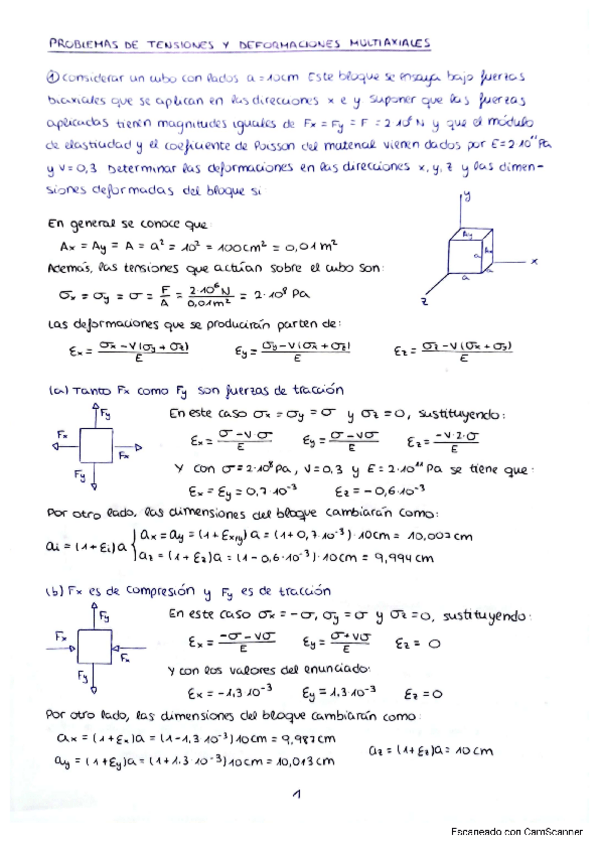 PROBLEMAS DE TENSIONES Y DEFORMACIONES MULTIAXIALES
① considerar un cubo con lados a = 10cm Este bloque se ensaya bajo fuerzas
biaxiales que se aplican en las direcciones x e y Suponer que las fuerzas
aplicadas tienen magnitudes iguales de Fx = Fy = F = 2 10⁶ N y que el módulo
de elasticidad y el coeficiente de Poisson del material vienen dados por E = 2 10¹¹ Pa
y V = 0,3 Determinar las deformaciones en las direcciones x, y, z y las dimen-
siones deformadas del bloque si
En general se conoce que:
Ax = Ay = A = a² = 10² = 100cm² = 0,01m²
Además, las tensiones que actúan sobre el cubo son:
σx = σy = σ = F/A = 2·10⁶N/0,01m² = 2·10⁸ Pa
y
Ay
a
a
x
z
Las deformaciones que se producirán parten de:
εx = σx - V(σy + σz)/E εy = σy - V(σx + σz)/E εz = σz - V(σx + σy)/E
(a) Tanto Fx como Fy son fuerzas de tracción
Fy
Fx
Fx
Fy
En este caso σx = σy = σ y σz = 0, sustituyendo:
εx = σ - V·σ/E εy = σ - Vσ/E εz = -V·2·σ/E
Y con σ = 2·10⁸ Pa, V = 0,3 y E = 2·10¹¹ Pa se tiene que:
εx = εy = 0,7·10⁻³ εz = -0,6·10⁻³
Por otro lado, las dimensiones del bloque cambiarán como:
ai = (1 + εi)a { ax = ay = (1 + εx,y)a = (1 + 0,7·10⁻³)·10cm = 10,007cm
az = (1 + εz)a = (1 - 0,6·10⁻³)·10cm = 9,994cm
(b) Fx es de compresión y Fy es de tracción
Fy
Fx
Fx
Fy
En este caso σx = -σ, σy = σ y σz = 0, sustituyendo:
εx = -σ - Vσ/E εy = σ + Vσ/E εz = 0
Y con los valores del enunciado:
εx = -1,3 10⁻³ εy = 1,3·10⁻³ εz = 0
Por otro lado, las dimensiones del bloque cambiarán como:
ax = (1 + εx)a = (1 - 1,3·10⁻³)10cm = 9,987cm az = (1 + εz)a = 10cm
ay = (1 + εy)a = (1 + 1.3·10⁻³)10cm = 10,013cm
1
Escaneado con CamScanner